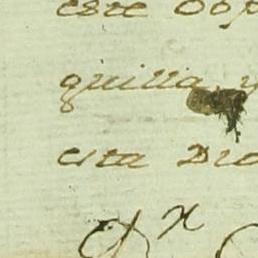 este Obp
quilla, y
esta Dio